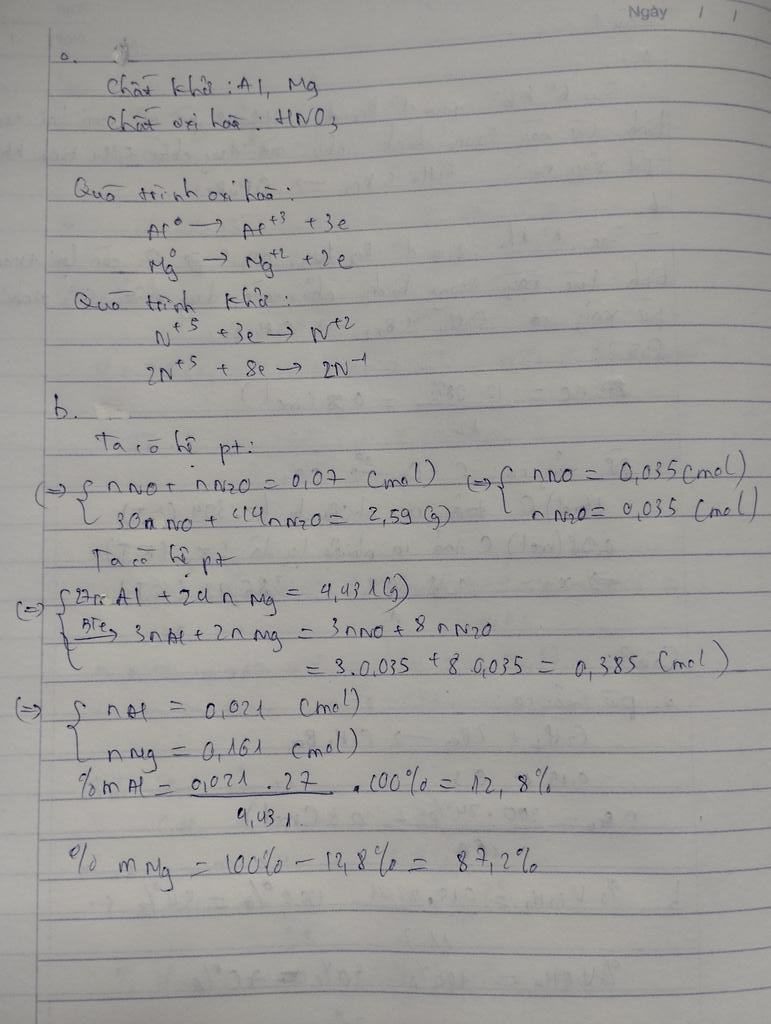 Ngày / /
a.
Chất khử : Al, Mg
Chất oxi hoá : HNO3
Quá trình oxi hoá :
Al⁰ → Al⁺³ + 3e
Mg⁰ → Mg⁺² + 2e
Quá trình khử :
N⁺⁵ + 3e → N⁺²
2N⁺⁵ + 8e → 2N⁻¹
b.
Ta có hệ pt:
(=> { nNO + nN2O = 0,07 (mol) (=> { nNO = 0,035 (mol)
30nNO + 44nN2O = 2,59 (g) nN2O = 0,035 (mol)
Ta có hệ pt
(=> { 27n Al + 24n Mg = 4,431 (g)
BTe → 3nAl + 2nMg = 3nNO + 8nN2O
= 3.0,035 + 8.0,035 = 0,385 (mol)
(=> { nAl = 0,021 (mol)
nMg = 0,161 (mol)
%mAl = 0,021 . 27 . 100% = 12,8%
4,431
% mMg = 100% - 12,8% = 87,2%